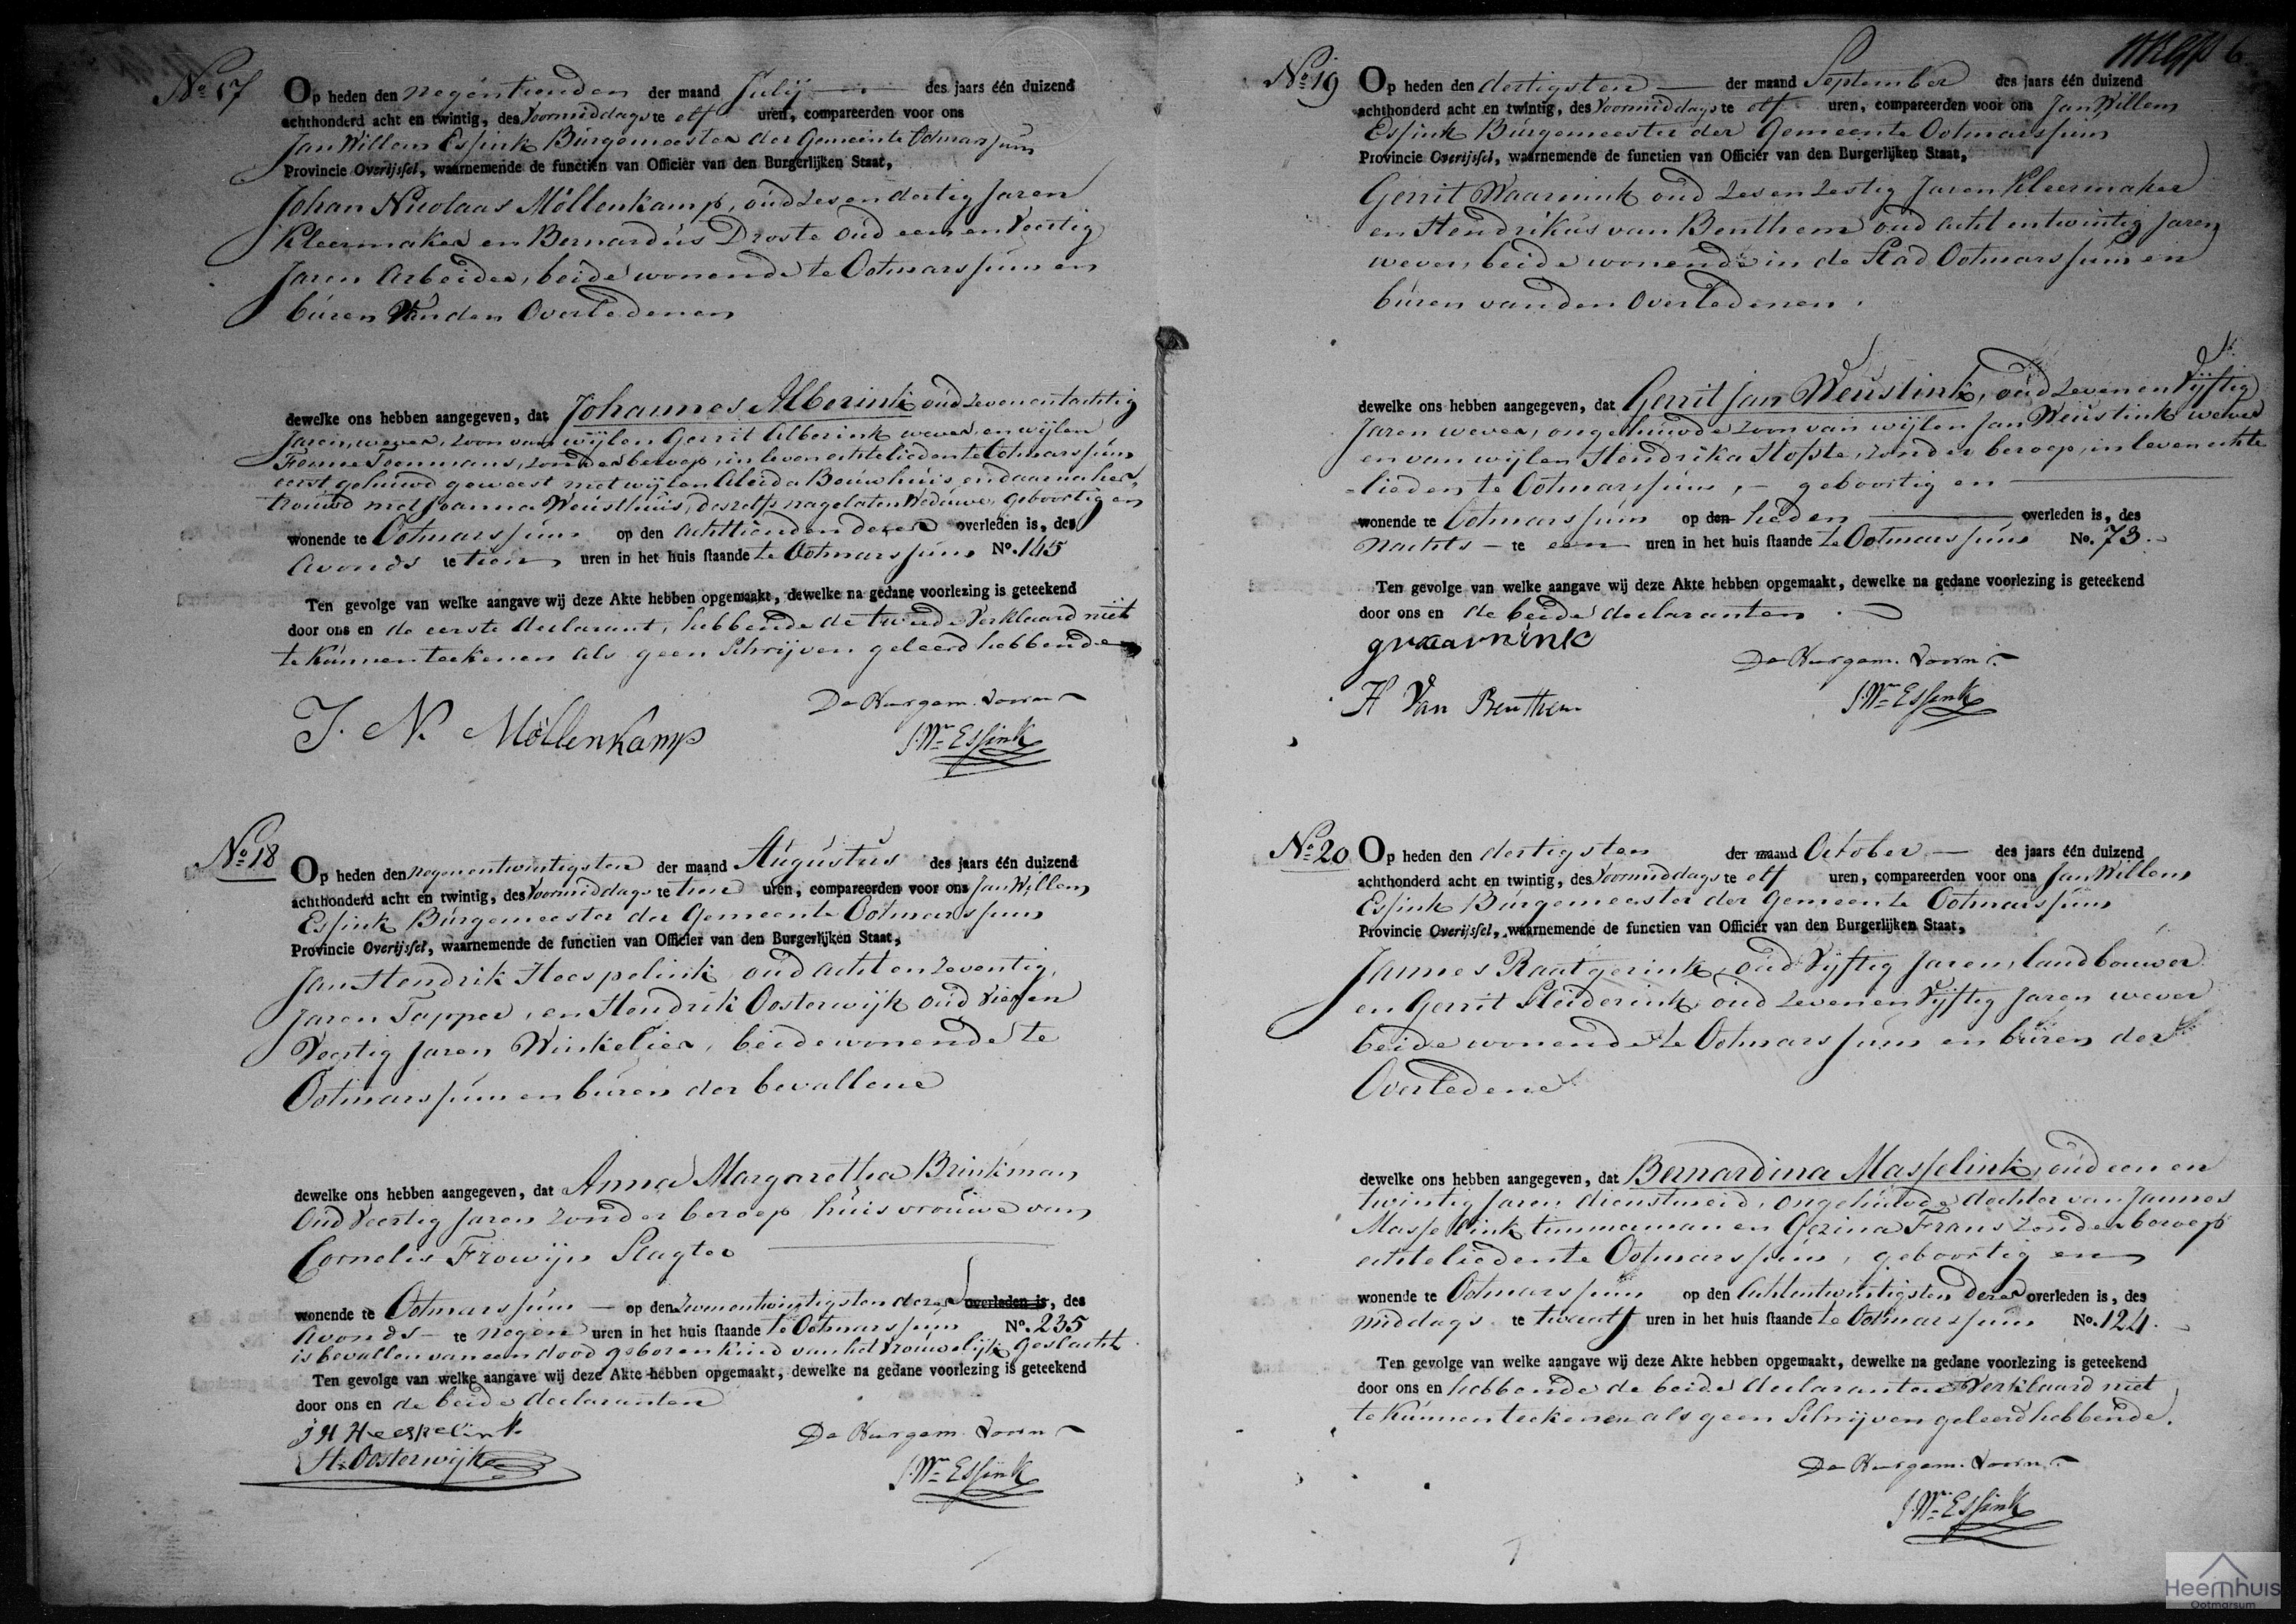 No 17
Op heden den negentienden der maand Julij des jaars één duizend
achthonderd acht en twintig, des Voormiddags te elf uren, compareerden voor ons
Jan Willem Essink Burgemeester der Gemeente Ootmarssum
Provincie Overijssel, waarnemende de functien van Officier van den Burgerlijken Staat,
Johan Nicolaas Möllenkamp, oud zes en dertig Jaren
Kleermaker en Bernardus Droste oud een en Veertig
Jaren Arbeider, beide wonende te Ootmarssum en
buren van den Overledenen
dewelke ons hebben aangegeven, dat Johannes Alberink oud zeven en tachtig
Jaren, wever, zoon van wijlen Gerrit Alberink wever, en wijlen
Fenne Toenmans, zonder beroep, in leven echtelieden te Ootmarssum
eerst gehuwd geweest met wijlen Aleida Bouwhuis, en daarna her„
trouwd met Joanna Weusthuis, deszelfs nagelaten Weduwe, geboortig en
wonende te Ootmarssum op den achttienden dezer overleden is, des
Avonds te tien uren in het huis staande te Ootmarssum No. 145
Ten gevolge van welke aangave wij deze Akte hebben opgemaakt, dewelke na gedane voorlezing is geteekend
door ons en de eerste declarant, hebbende de tweede Verklaard niet
te kunnen teekenen als geen Schrijven geleerd hebbende
J. N. Möllenkamp
De Burgem. voorn.
J. Wm Essink
No 18
Op heden den negenentwintigsten der maand Augustus des jaars één duizend
achthonderd acht en twintig, des Voormiddags te tien uren, compareerden voor ons Jan Willem
Essink Burgemeester der Gemeente Ootmarssum
Provincie Overijssel, waarnemende de functien van Officier van den Burgerlijken Staat,
Jan Hendrik Heespelink oud acht en Zeventig
Jaren Tapper, en Hendrik Oosterwijk oud Vier en
Veertig Jaren Winkelier, beide wonende te
Ootmarssum en buren der bevallene
dewelke ons hebben aangegeven, dat Anna Margaretha Brinkman
Oud Veertig Jaren zonder beroep huisvrouwe van
Cornelis Frowijn Slagter
wonende te Ootmarssum op den Zevenentwintigsten dezer overleden is, des
Avonds te negen uren in het huis staande te Ootmarssum No. 235
is bevallen van een dood geboren kind van het Vrouwelijk geslacht
Ten gevolge van welke aangave wij deze Akte hebben opgemaakt, dewelke na gedane voorlezing is geteekend
door ons en de beide declaranten
J H Heespelink
H. Oosterwijk
De Burgem. voorn.
J. Wm Essink
6
No 19
Op heden den dertigsten der maand September des jaars één duizend
achthonderd acht en twintig, des Voormiddags te elf uren, compareerden voor ons Jan Willem
Essink Burgemeester der Gemeente Ootmarssum
Provincie Overijssel, waarnemende de functien van Officier van den Burgerlijken Staat,
Gerrit Waarnink oud Zes en Zestig Jaren Kleermaker
en Hendrikus van Benthem oud acht en twintig Jaren
wever, beide wonende in de Stad Ootmarssum en
buren van den Overledenen.
dewelke ons hebben aangegeven, dat Gerrit Jan Weustink, oud Zeven en Vijftig
Jaren wever, ongehuwde zoon van wijlen Jan Weustink wever
en van wijlen Hendrika Hofste, zonder beroep, in leven echte
-lieden te Ootmarssum, geboortig en
wonende te Ootmarssum op den heden overleden is, des
Nachts te een uren in het huis staande te Ootmarssum No. 73.
Ten gevolge van welke aangave wij deze Akte hebben opgemaakt, dewelke na gedane voorlezing is geteekend
door ons en de beide declaranten.
gwaarnink
H Van Benthem
De Burgem. voorn.
J. Wm Essink
No 20
Op heden den dertigsten der maand October des jaars één duizend
achthonderd acht en twintig, des Voormiddags te elf uren, compareerden voor ons Jan Willem
Essink Burgemeester der Gemeente Ootmarssum
Provincie Overijssel, waarnemende de functien van Officier van den Burgerlijken Staat,
Jannes Raatgerink, oud Vijftig Jaren, landbouwer
en Gerrit Sleiderink, oud Zeven en Vijftig Jaren wever
beide wonende te Ootmarssum en buren der
Overledene
dewelke ons hebben aangegeven, dat Bernardina Masselink, oud een en
twintig Jaren, dienstmeid, ongehuwde dochter van Jannes
Masselink timmerman en Gezina Frans zonder beroep
echtelieden te Ootmarssum, geboortig en
wonende te Ootmarssum op den Achtentwintigsten dezer overleden is, des
middags te twaalf uren in het huis staande te Ootmarssum No. 124.
Ten gevolge van welke aangave wij deze Akte hebben opgemaakt, dewelke na gedane voorlezing is geteekend
door ons en hebbende de beide declaranten Verklaard niet
te kunnen teekenen als geen Schrijven geleerd hebbende.
De Burgem. voorn.
J. Wm Essink
Heemhuis
Ootmarsum